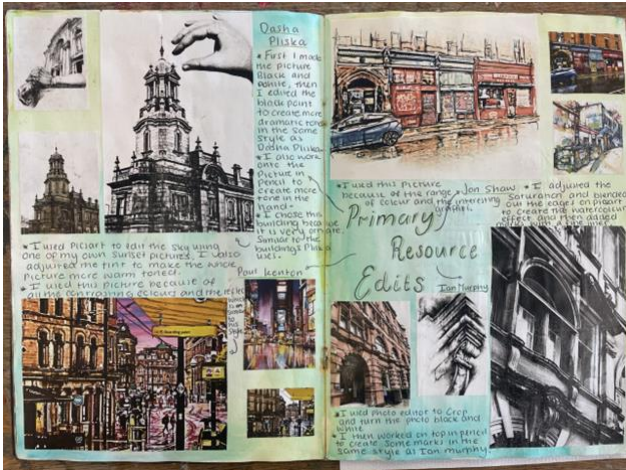 Dasha
Pliska
* First I made
the picture
Black and
white, then
I edited the
black point
to create more
dramatic tone
in the same
style as
Dasha Pliska
* I also work
onto the
Picture in
Pencil to
create more
tone in the
hand.
* I chose this
building because
it is very ornate,
Similar to the
buildings Pliska
uses.
* I used Picsart to edit the sky using
one of my own sunset pictures, I also
adjusted the tint to make the whole
Picture more warm toned.
* I used this picture because of
all the contrasting colours and the
Paul Kenton
* I used this picture
because of the range
of colour and the interesting
graffiti.
Jon Shaw
* I adjusted the
Saturation and blended
out the edges on picsart
to create the watercolour
effect and then added
Primary
Resource
Edits
Ian Murphy
* I used photo editor to crop
and turn the photo black and
white
* I then worked on top in pencil
to create some marks in the
same style as Ian murphy.